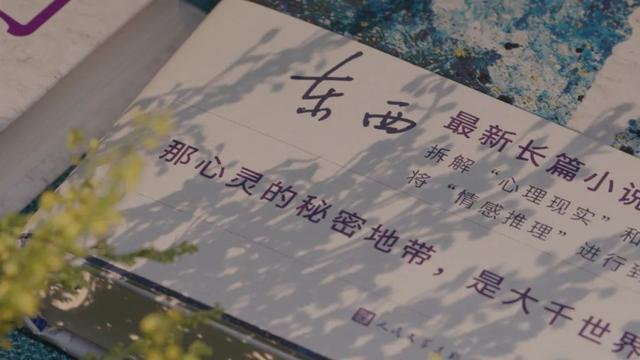 东西 最新长篇小说
拆解“心理现实”和
将“情感推理”进行至
那心灵的秘密地带，是大千世界
人民文学